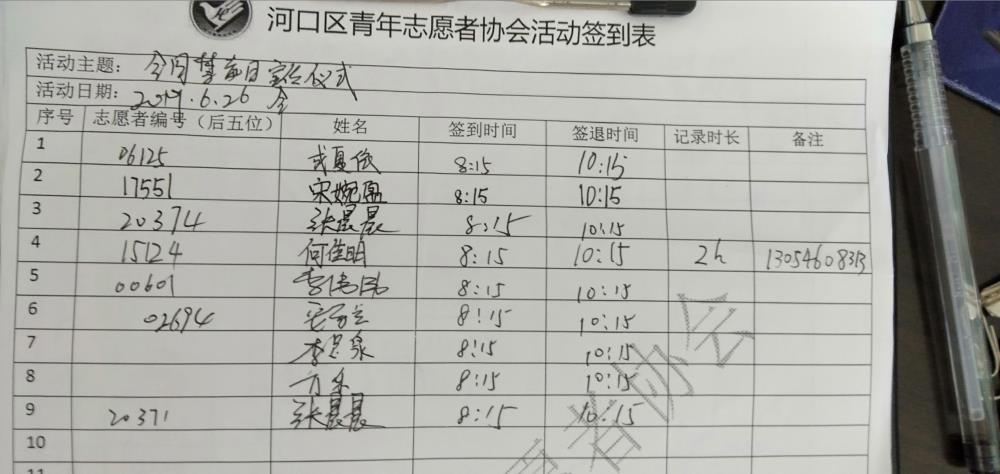 河口区青年志愿者协会活动签到表
活动主题：
活动日期：2019.6.26
序号 志愿者编号（后五位） 姓名 签到时间 签退时间 记录时长 备注
1 06125 8:15 10:15
2 17551 宋婉 8:15 10:15
3 20374 张晨晨 8:15 10:15
4 15124 何佳明 8:15 10:15 2h
5 00601 李 8:15 10:15
6 02694 8:15 10:15
7 李 泉 8:15 10:15
8 8:15 10:15
9 20371 张晨晨 8:15 10:15
10
11
愿者协会